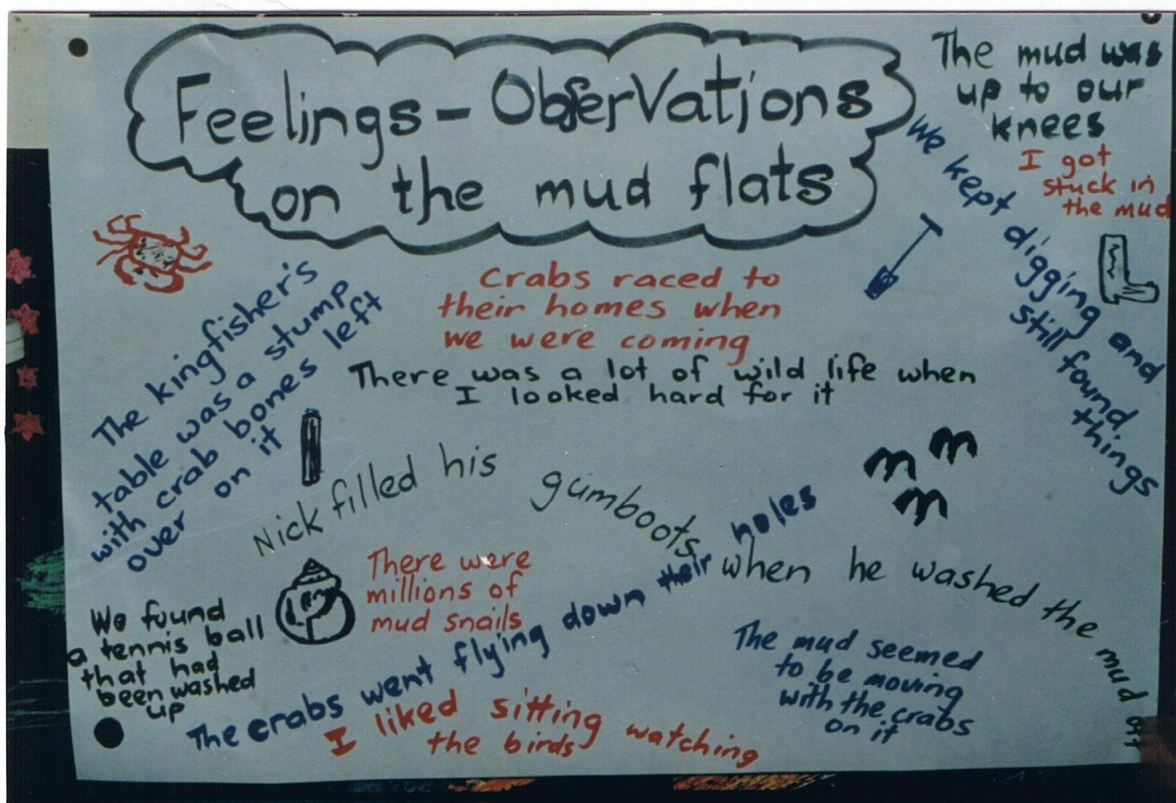 Feelings - Observations
on the mud flats
The mud was
up to our
knees
I got
stuck in
the mud
We kept digging and
still found
things
Crabs raced to
their homes when
we were coming
There was a lot of wild life when
I looked hard for it
The kingfisher's
table was a stump
with crab bones left
over on it
Nick filled his gumboots when he washed the mud off
There were
millions of
mud snails
We found
a tennis ball
that had
been washed
up
The crabs went flying down their holes
The mud seemed
to be moving
with the crabs
on it
I liked sitting watching
the birds